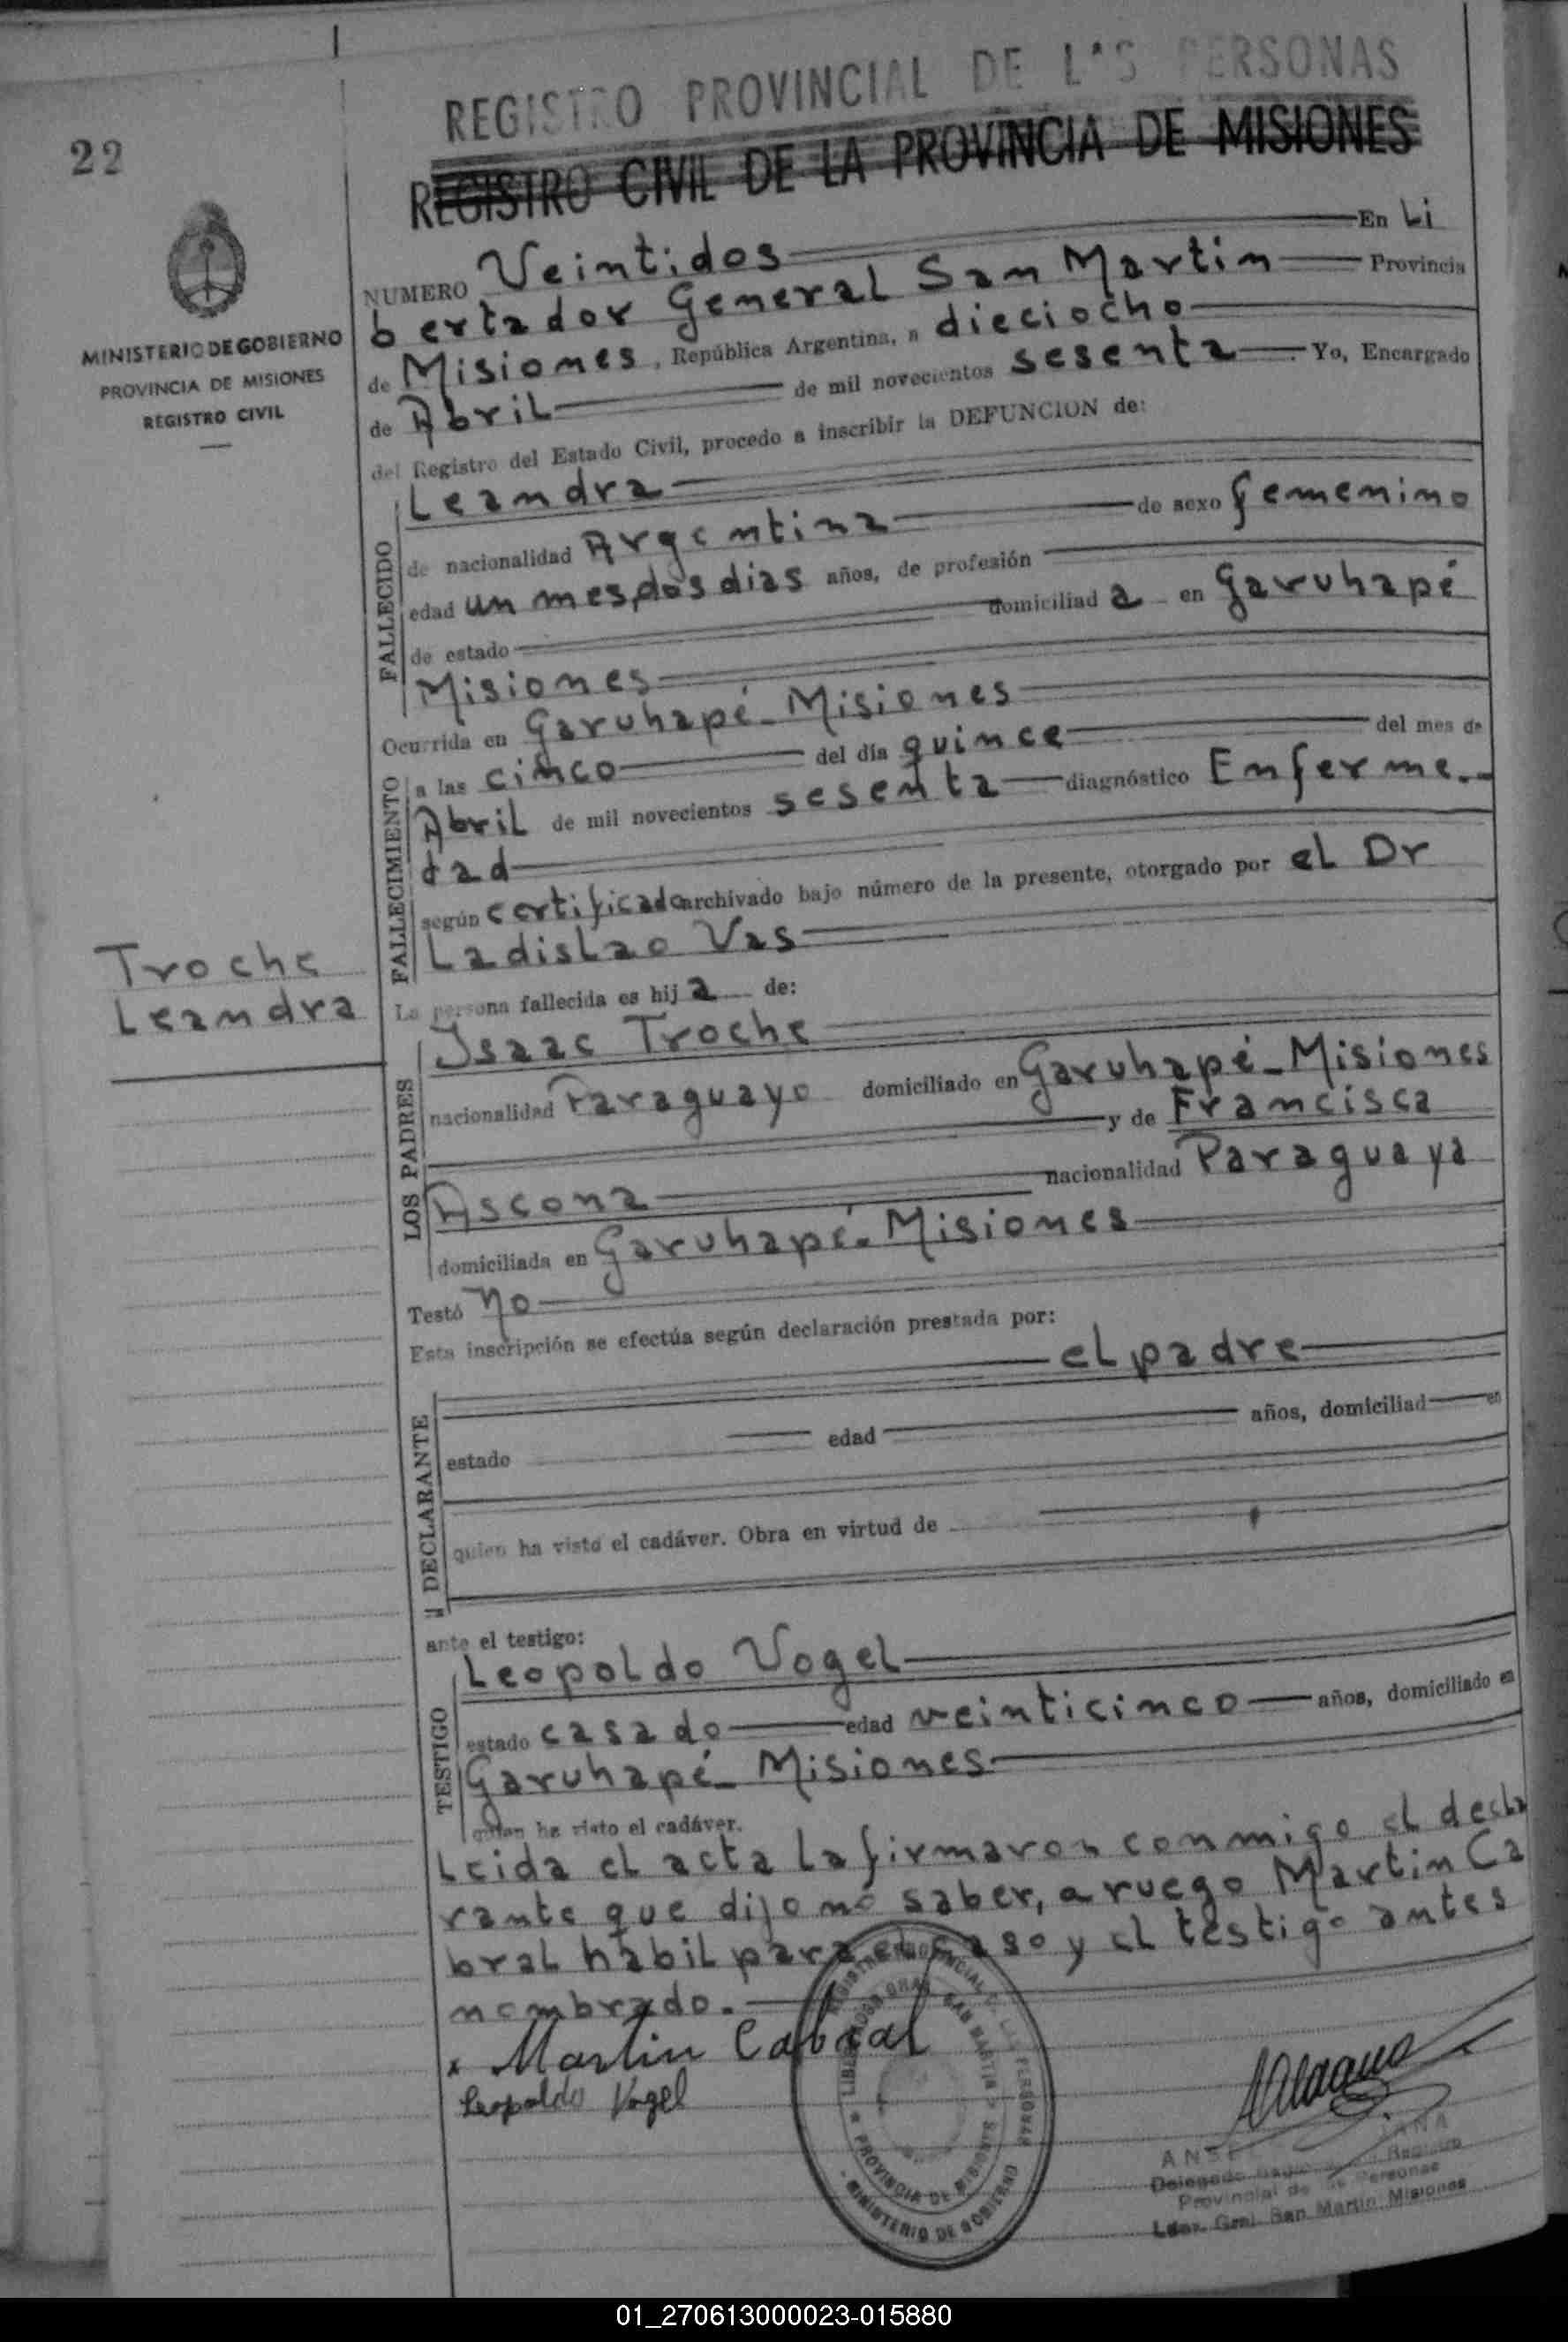 REGISTRO PROVINCIAL DE LAS PERSONAS
REGISTRO CIVIL DE LA PROVINCIA DE MISIONES
22
MINISTERIO DE GOBIERNO
PROVINCIA DE MISIONES
REGISTRO CIVIL
NUMERO Veintidos En Li
bertador General San Martin Provincia
de Misiones, República Argentina, a dieciocho
de Abril de mil novecientos sesenta Yo, Encargado
del Registro del Estado Civil, procedo a inscribir la DEFUNCION de:
FALLECIDO
Leandra
de nacionalidad Argentina de sexo femenino
edad un mes, dos dias años, de profesión
de estado domiciliad a en Garuhapé
Misiones
Ocurrida en Garuhapé - Misiones
FALLECIMIENTO
a las cinco del día quince del mes de
Abril de mil novecientos sesenta diagnóstico Enferme-
dad
según certificado archivado bajo número de la presente, otorgado por el Dr
Ladislao Vas
Troche
Leandra
La persona fallecida es hij a de:
LOS PADRES
Isaac Troche
nacionalidad Paraguayo domiciliado en Garuhapé - Misiones
y de Francisca
Ascona nacionalidad Paraguaya
domiciliada en Garuhapé - Misiones
Testó no
Esta inscripción se efectúa según declaración prestada por:
DECLARANTE
el padre
estado edad años, domiciliad en
quien ha visto el cadáver. Obra en virtud de
ante el testigo:
TESTIGO
Leopoldo Vogel
estado casado edad veinticinco años, domiciliado en
Garuhapé - Misiones
quien ha visto el cadáver.
Leida el acta la firmaron conmigo el decla
rante que dijo no saber, a ruego Martin Ca
bral habil para el caso y el testigo antes
nombrado.-
x Martin Cabral
Leopoldo Vogel
REGISTRO PROVINCIAL D. LAS PERSONAS
LIBERTADOR GRAL. SAN MARTIN
PROVINCIA DE MISIONES
MINISTERIO DE GOBIERNO
Provincial de las Personas
Ldor. Gral. San Martin Misiones
01_270613000023-015880